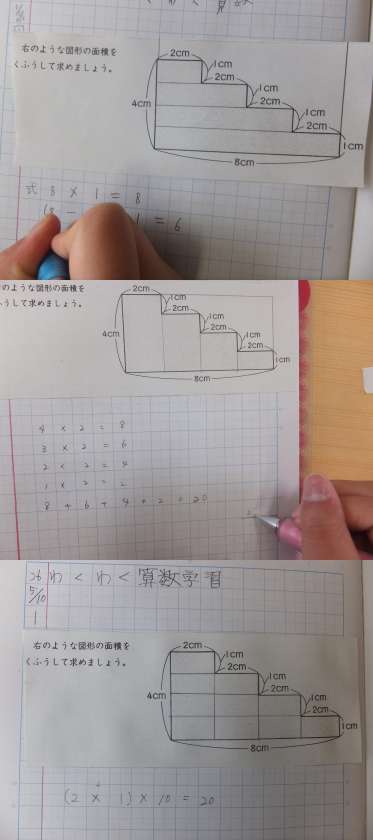 右のような図形の面積を
くふうして求めましょう。
2cm
1cm
2cm
1cm
2cm
1cm
2cm
4cm
1cm
8cm
式 8 × 1 = 8
1 = 6
のような図形の面積を
ふうして求めましょう。
2cm
1cm
2cm
1cm
2cm
1cm
2cm
4cm
1cm
8cm
4 × 2 = 8
3 × 2 = 6
2 × 2 = 4
1 × 2 = 2
8 + 6 + 4 + 2 = 20
26 わくわく算数学習
5/10
1
右のような図形の面積を
くふうして求めましょう。
2cm
1cm
2cm
1cm
2cm
1cm
2cm
4cm
1cm
8cm
(2 × 1) × 10 = 20